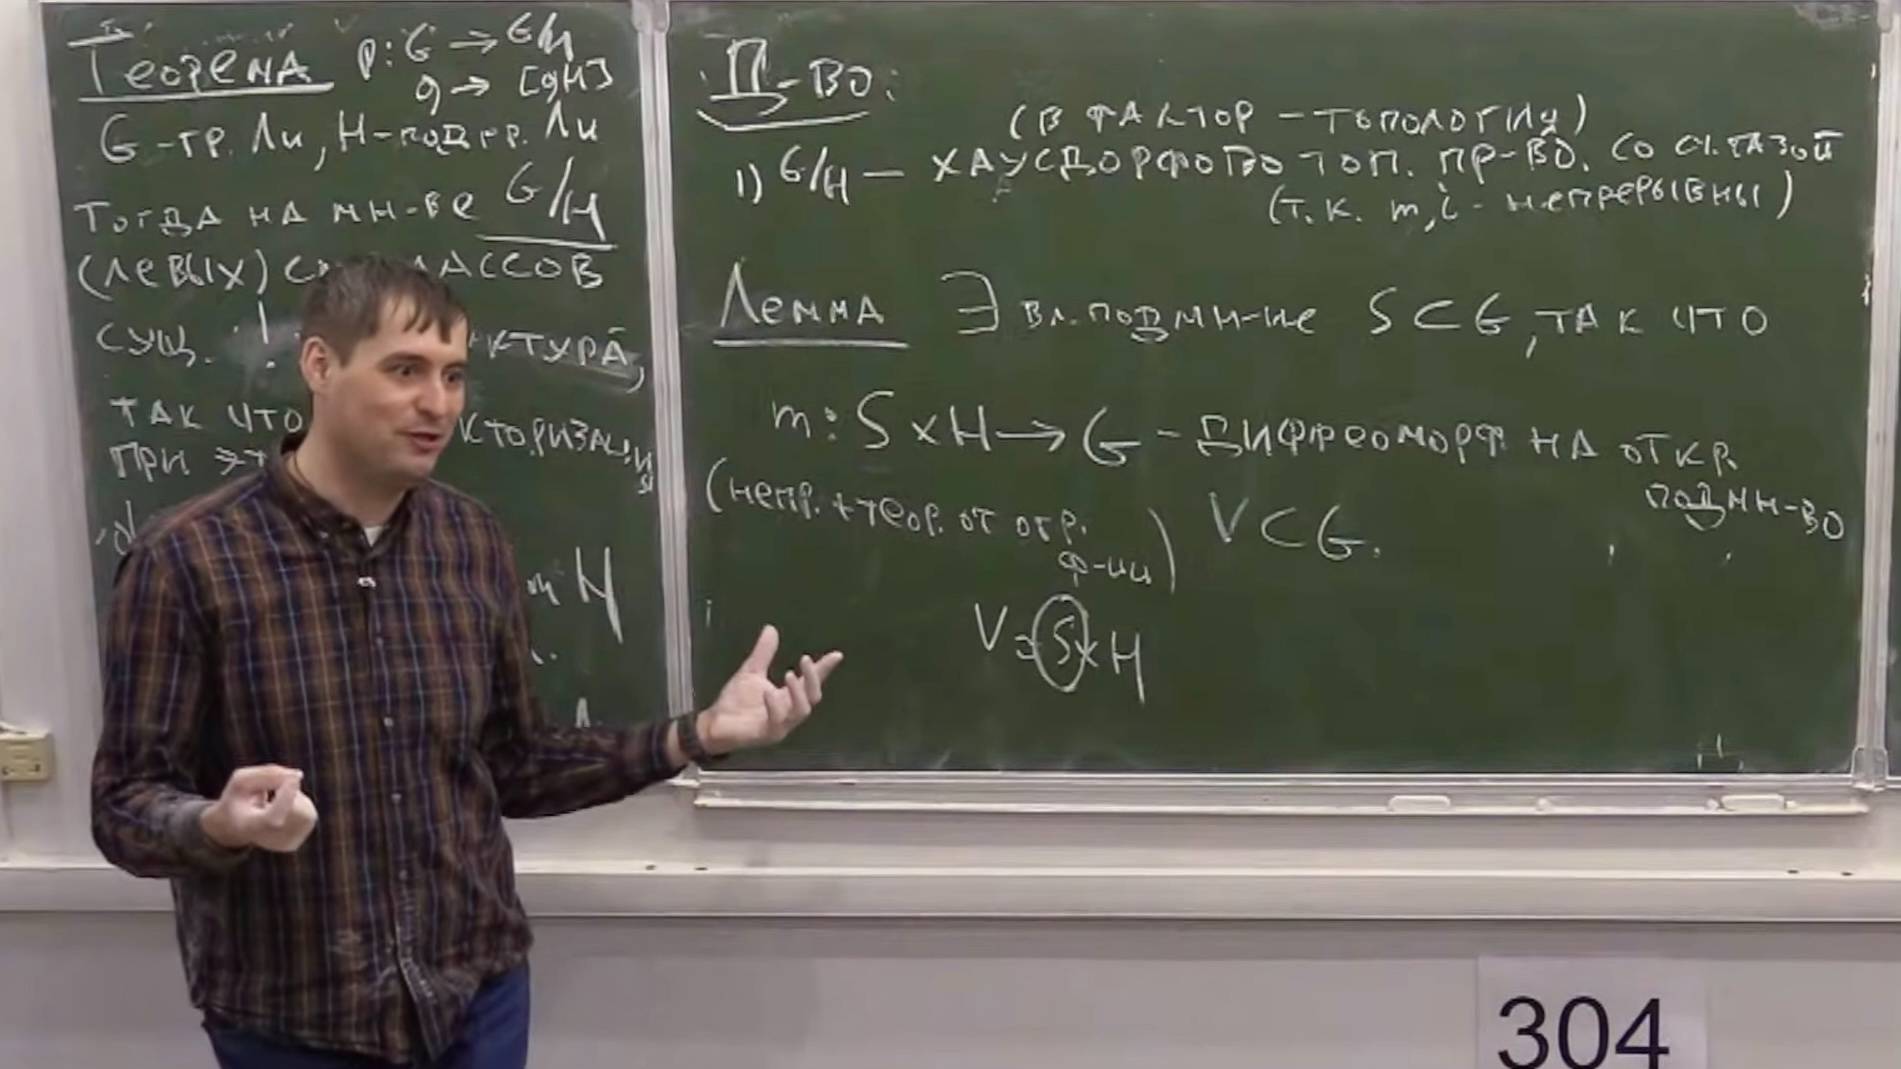 Теорема p: G → G/H
g → [gH]
G-гр. Ли, H-подгр. Ли
Тогда на мн-ве G/H
(левых)
сущ. !
так что
при
H
Д-во:
(в фактор-топологии)
1) G/H — хаусдорфово топ. пр-во. со сч. базой
(т.к. m, i - непрерывны)
Лемма ∃ вл. подмн-ие S ⊂ G, так что
m: S × H → G - диффеоморф. на откр.
подмн-во
(непр. + теор. от обр. V ⊂ G.
ф-ии)
V = S × H
304